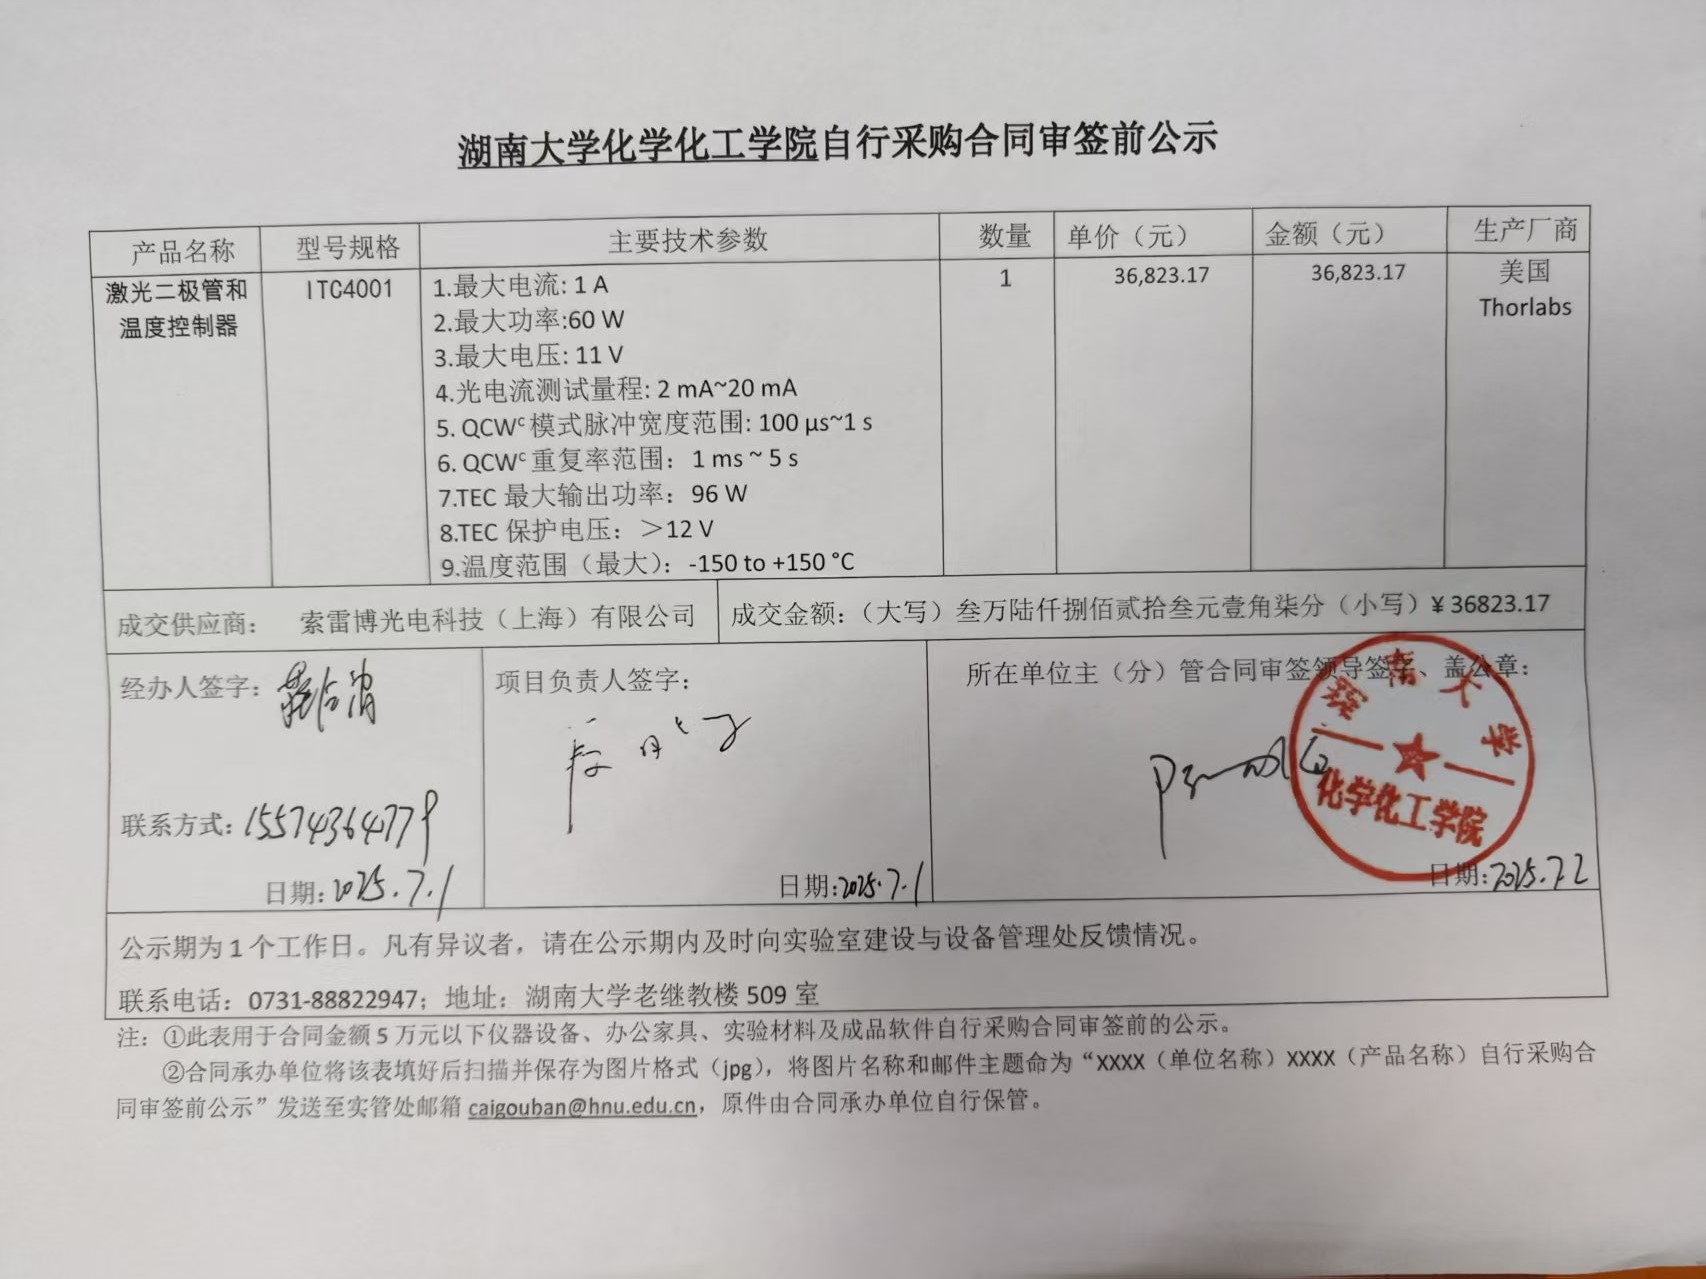 湖南大学化学化工学院自行采购合同审签前公示
产品名称 型号规格 主要技术参数 数量 单价（元） 金额（元） 生产厂商
激光二极管和温度控制器 ITC4001 1 36,823.17 36,823.17 美国 Thorlabs
1.最大电流: 1 A
2.最大功率:60 W
3.最大电压: 11 V
4.光电流测试量程: 2 mA~20 mA
5. QCWᶜ 模式脉冲宽度范围: 100 μs~1 s
6. QCWᶜ 重复率范围：1 ms ~ 5 s
7.TEC 最大输出功率：96 W
8.TEC 保护电压：＞12 V
9.温度范围（最大）：-150 to +150 °C
成交供应商： 索雷博光电科技（上海）有限公司 成交金额：（大写）叁万陆仟捌佰贰拾叁元壹角柒分（小写）¥ 36823.17
经办人签字： 项目负责人签字： 所在单位主（分）管合同审签领导签字、盖公章：
湖南大学
化学化工学院
联系方式：15574364779
日期: 2025.7.1 日期: 2025.7.1 日期: 2025.7.2
公示期为 1 个工作日。凡有异议者，请在公示期内及时向实验室建设与设备管理处反馈情况。
联系电话：0731-88822947；地址：湖南大学老继教楼 509 室
注：①此表用于合同金额 5 万元以下仪器设备、办公家具、实验材料及成品软件自行采购合同审签前的公示。
②合同承办单位将该表填好后扫描并保存为图片格式（jpg），将图片名称和邮件主题命为“XXXX（单位名称）XXXX（产品名称）自行采购合
同审签前公示”发送至实管处邮箱 caigouban@hnu.edu.cn，原件由合同承办单位自行保管。